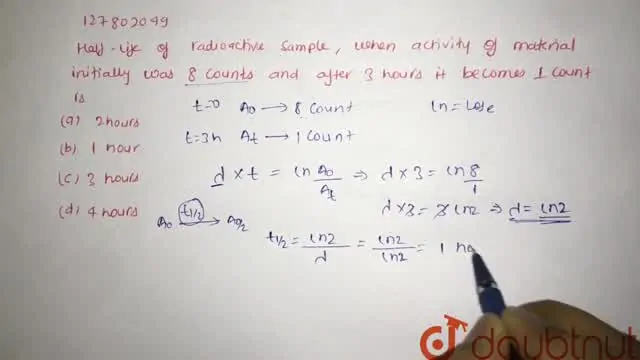 127802049
Half-life of radioactive sample, when activity of material
initially was 8 counts and after 3 hours it becomes 1 count
is
(a) 2 hours
(b) 1 hour
(c) 3 hours
(d) 4 hours
t=0 A₀ → 8 count
ln = logₑ
t=3h Aₜ → 1 count
λ × t = ln A₀/Aₜ ⇒ λ × 3 = ln 8/1
λ × 3 = 3 ln2 ⇒ λ = ln2
A₀ t1/2 → A₀/2
t1/2 = ln2/λ = ln2/ln2 = 1 ho
doubtnut